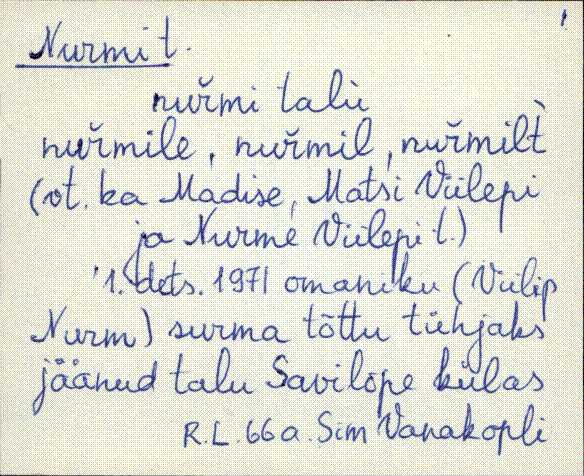 1.
Nurmi t.
nuřmi talù
nuřmile, nuřmil, nuřmilt̀
(vt. ka Madise, Matsi Viilepi
ja Nurme Viilepi t.)
1. dets. 1971 omaniku (Viilip
Nurm) surma tõttu tühjaks
jäänud talu Savilõpe külas
R.L. 66 a. Sim Vanakopli